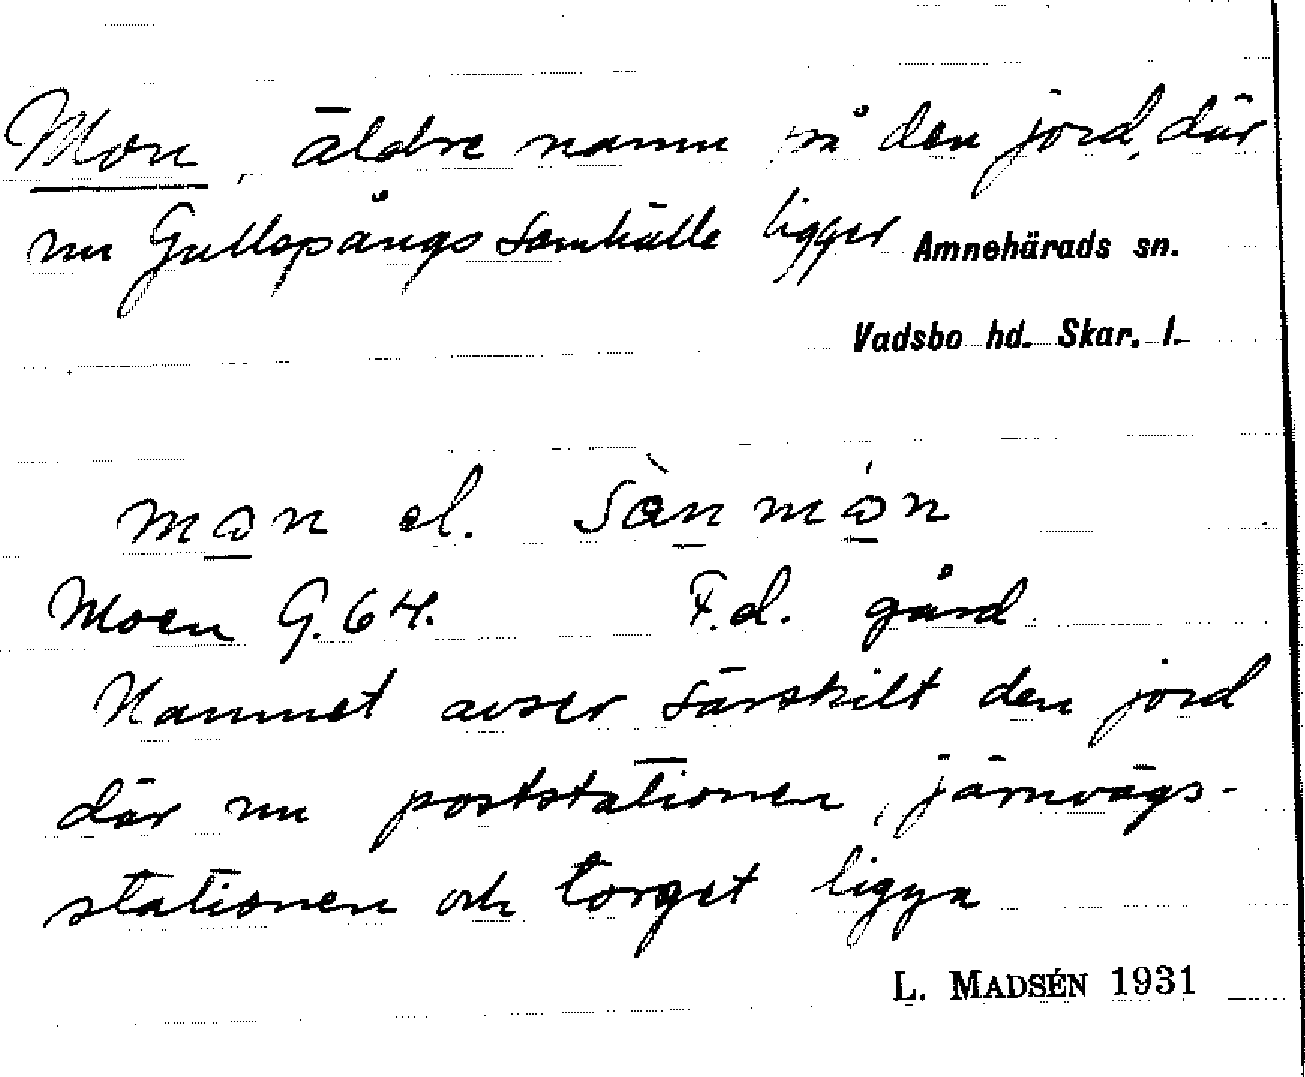 Mon, äldre namn på den jord, där
nu Gullspångs samhälle ligger
Amnehärads sn.
Vadsbo hd. Skar. l.
mon el. sànmón
Moen G. 64. F.d. gård
Namnet avser särskilt den jord
där nu poststationen, järnvägs-
stationen och torget ligga
L. MADSÉN 1931